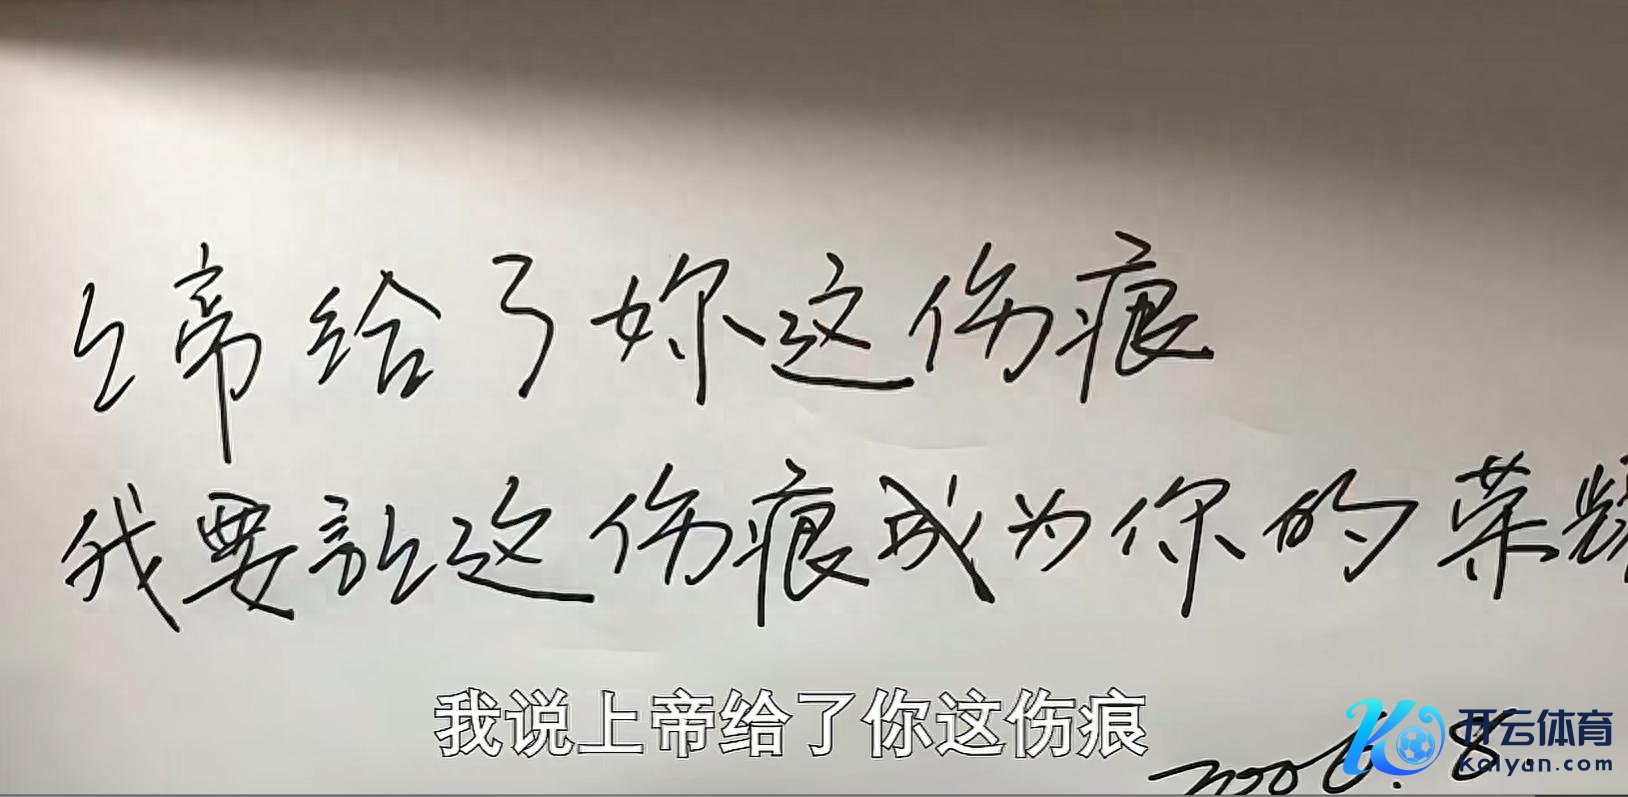 上帝给了妳这伤痕
我要让这伤痕成为你的荣耀
我说上帝给了你这伤痕
开云体育
Kaiyun.com